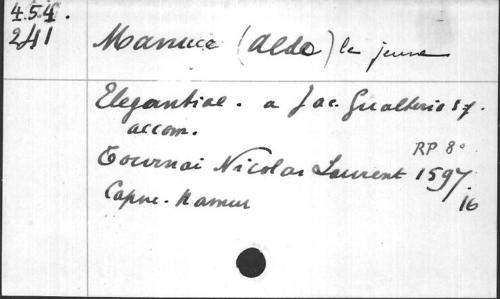 454.
241
Manuce (Alde) le jeune
Elegantiae. a Jac. Gualterio S.J.
accom.
RP 8°
Tournai Nicolas Laurent 1597.
16
Capuc. Namur